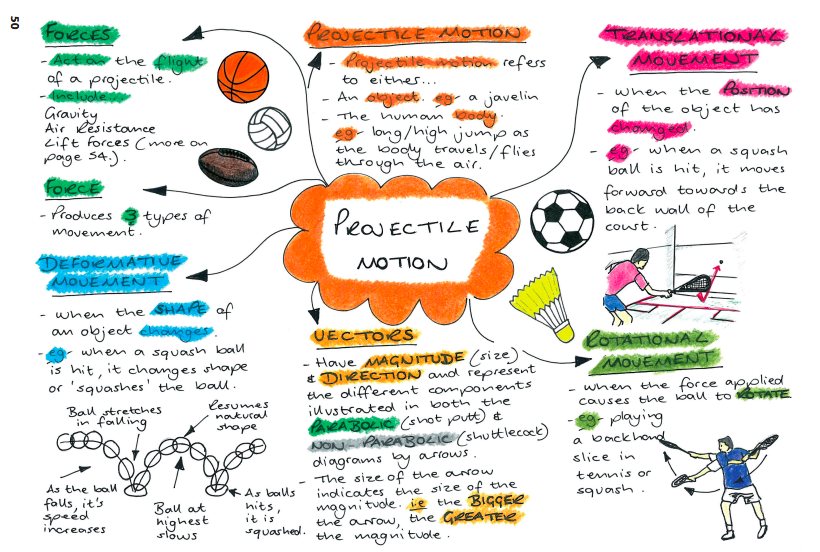 50
FORCES
- Act on the flight
of a projectile.
- Include...
Gravity
Air Resistance
Lift Forces (more on
page 54.).
FORCE
- Produces 3 types of
movement.
DEFORMATIVE
MOVEMENT
- when the SHAPE of
an object changes.
- eg - when a squash ball
is hit, it changes shape
or 'squashes' the ball.
Ball stretches
in falling
Resumes
natural
shape
As the ball
falls, it's
speed
increases
Ball at
highest
slows
As balls
hits,
it is
squashed.
PROJECTILE MOTION
- Projectile motion refers
to either...
- An object. eg - a javelin
- The human body.
eg - long/high jump as
the body travels/flies
through the air.
PROJECTILE
MOTION
VECTORS
- Have MAGNITUDE (size)
& DIRECTION and represent
the different components
illustrated in both the
PARABOLIC (shot putt) &
NON-PARABOLIC (shuttlecock)
diagrams by arrows.
- The size of the arrow
indicates the size of the
magnitude. ie the BIGGER
the arrow, the GREATER
the magnitude.
TRANSLATIONAL
MOVEMENT
- when the POSITION
of the object has
changed.
- eg - when a squash
ball is hit, it moves
forward towards the
back wall of the
court.
ROTATIONAL
MOVEMENT
- when the force applied
causes the ball to ROTATE
- eg - playing
a backhand
slice in
tennis or
squash.